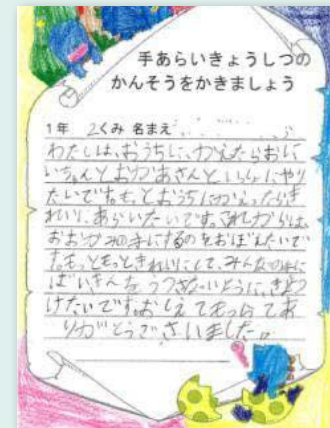 手あらいきょうしつの
かんそうをかきましょう
1年 2くみ 名まえ
わたしは、おうちに、かえたらおに
いちゃんとおかあさんといっしょにやり
たいです。もっとおうちにかえったらき
れいに、あらいたいです。これからは、
おおかみの手にするのをおぼえたいで
す。もっともっときれいにして、みんなの手に
ばいきんを うつさないように、きをつ
けたいです。おしえてもらってあ
りがとうございました。